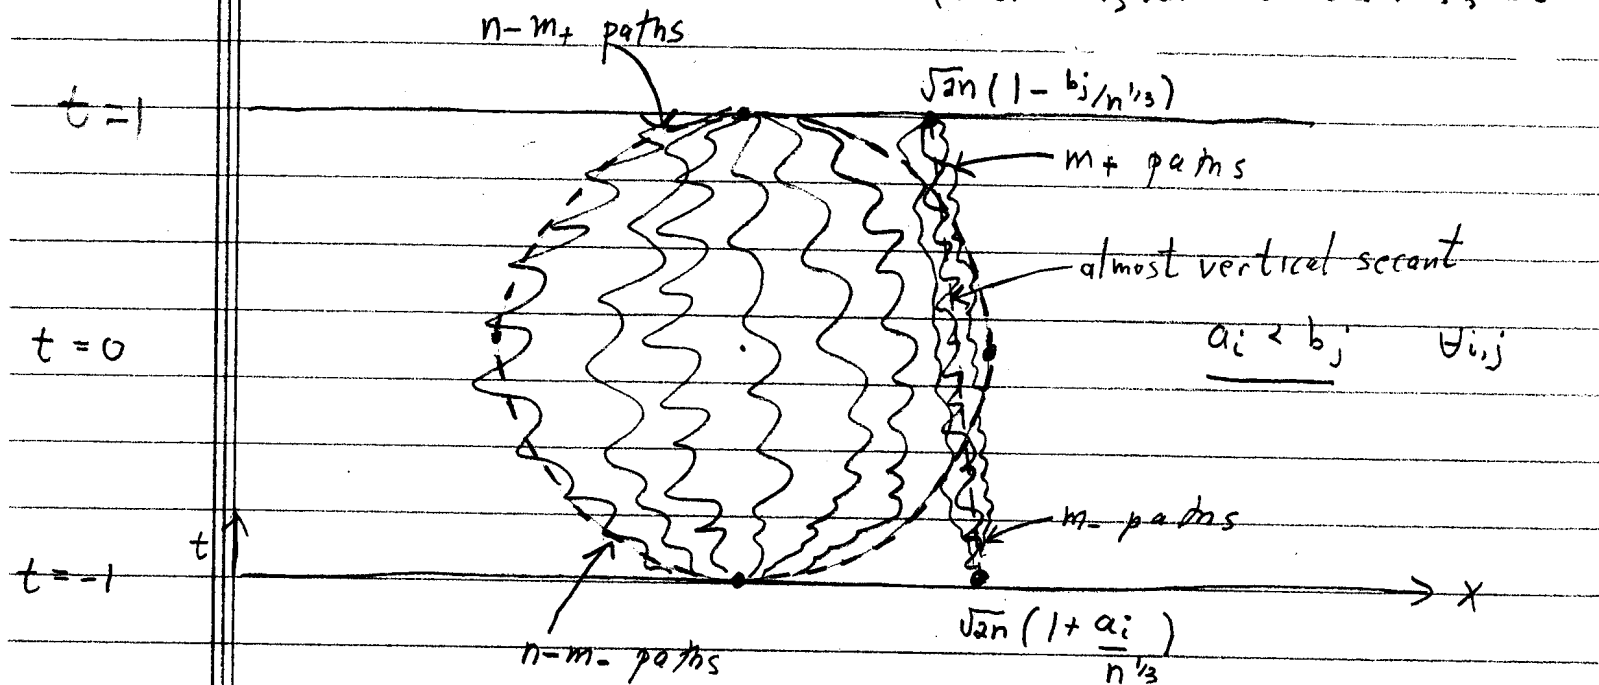 n-m₊ paths
√2n (1 - bⱼ/n^1/3)
t = 1
m₊ paths
almost vertical secant
aᵢ < bⱼ ∀i,j
t = 0
m₋ paths
t
t = -1
x
√2n (1 + aᵢ/n^1/3)
n-m₋ paths